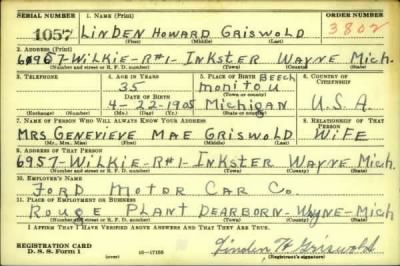 SERIAL NUMBER 1. NAME (Print) ORDER NUMBER
1057 LINDEN HOWARD GRISWOLD 3802
(First) (Middle) (Last)
2. ADDRESS (Print)
6957-WILKIE-R#1-INKSTER WAYNE Mich.
(Number and street or R. F. D. number) (Town) (County) (State)
3. TELEPHONE 4. AGE IN YEARS 5. PLACE OF BIRTH 6. COUNTRY OF CITIZENSHIP
35 BEECH
Monitou
DATE OF BIRTH (Town or county)
4-22-1905 Michigan U.S.A.
(Exchange) (Number) (Mo.) (Day) (Yr.) (State or country)
7. NAME OF PERSON WHO WILL ALWAYS KNOW YOUR ADDRESS 8. RELATIONSHIP OF THAT PERSON
MRS GENEVIEVE MAE GRISWOLD WIFE
(Mr., Mrs., Miss) (First) (Middle) (Last)
9. ADDRESS OF THAT PERSON
6957-WILKIE-R#1-INKSTER WAYNE Mich.
(Number and street or R. F. D. number) (Town) (County) (State)
10. EMPLOYER'S NAME
FORD MOTOR CAR Co.
11. PLACE OF EMPLOYMENT OR BUSINESS
ROUGE PLANT DEARBORN-WAYNE-Mich
(Number and street or R. F. D. number) (Town) (County) (State)
I AFFIRM THAT I HAVE VERIFIED ABOVE ANSWERS AND THAT THEY ARE TRUE.
REGISTRATION CARD
D. S. S. Form 1 (over) 16-17105 Linden H Griswold
(Registrant's signature)